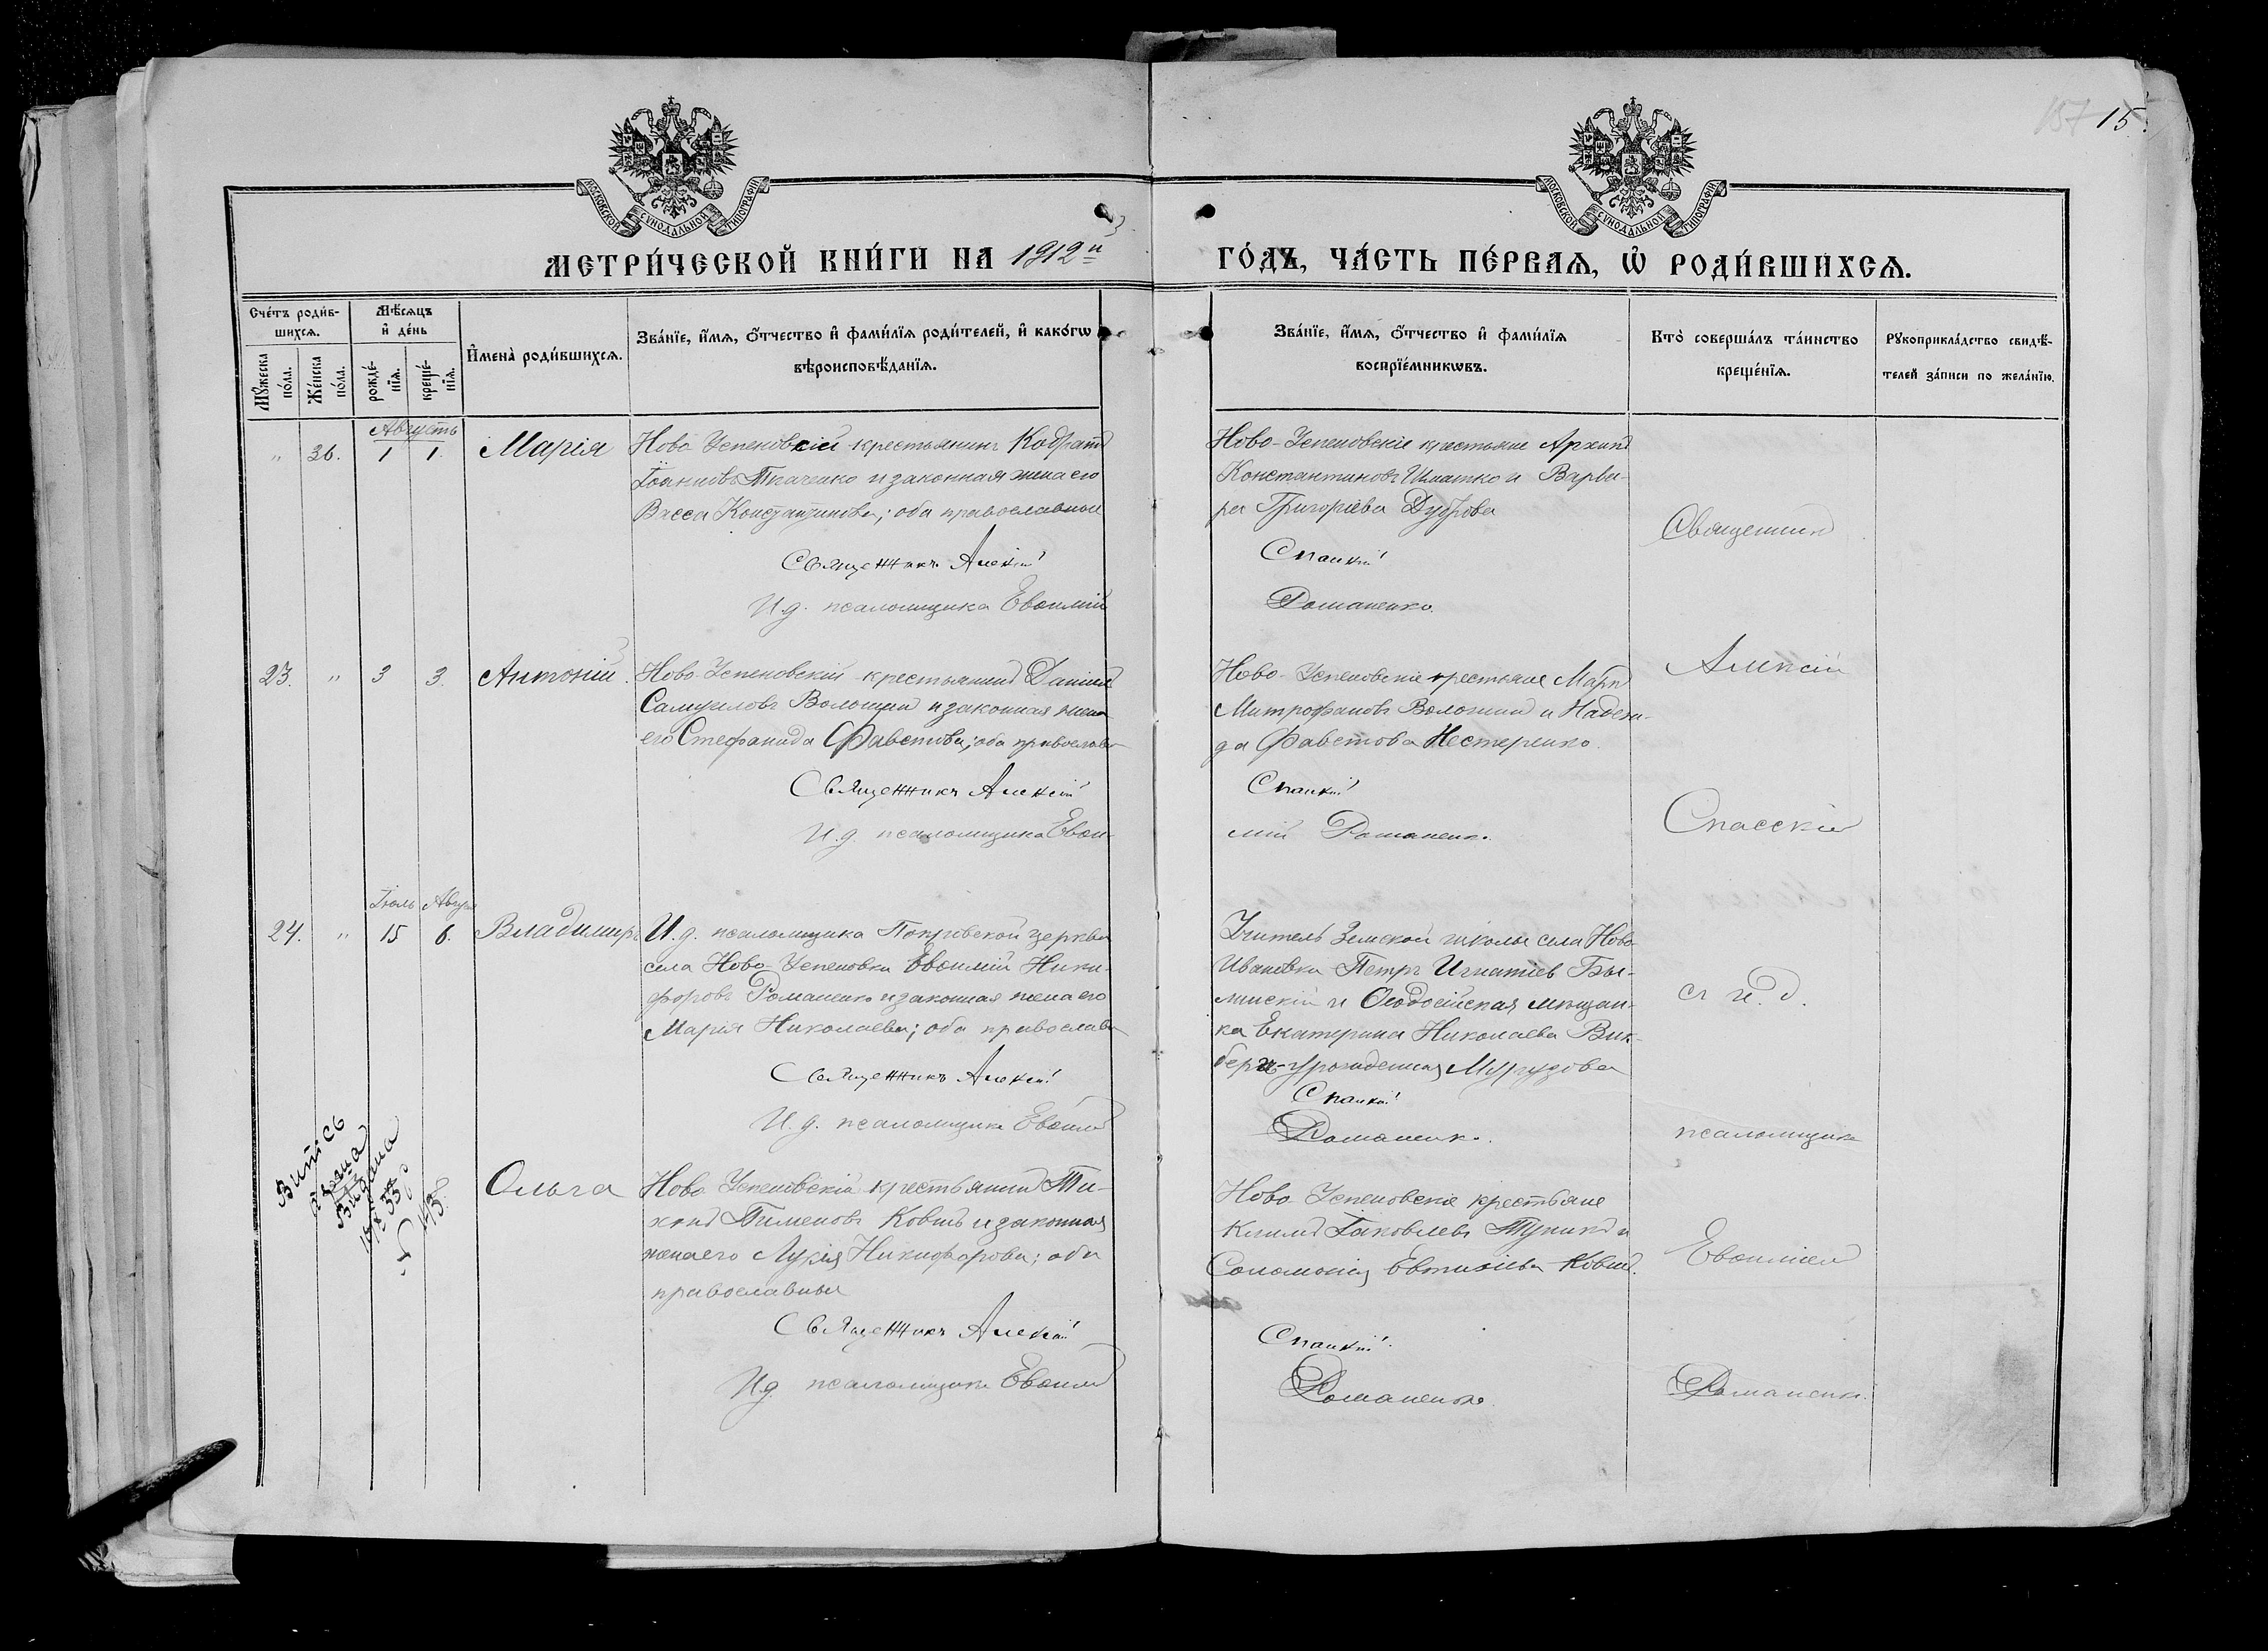 157 15.
МОСКОВСКОЙ СѴНОДАЛЬНОЙ ТИПОГРАФІИ
МОСКОВСКОЙ СѴНОДАЛЬНОЙ ТИПОГРАФІИ
МЕТРИ́ЧЕСКОЙ КНИ́ГИ НА 1912й ГО́ДЪ, ЧА́СТЬ ПЕ́РВАѦ, Ѡ҆ РОДИ́ВШИХСѦ.
Сче́тъ роди́в-
шихсѧ.
Мꙋ́жеска
по́ла.
Же́нска
по́ла.
Мѣ́сѧцъ
и҆ де́нь
рожде́-
нїѧ.
креще́-
нїѧ.
И҆мена̀ роди́вшихсѧ.
Зва́нїе, и҆́мѧ, ѻ҆́тчество и҆ фами́лїѧ роди́телей, и҆ како́гѡ
вѣроисповѣ́данїѧ.
Зва́нїе, и҆́мѧ, ѻ҆́тчество и҆ фами́лїѧ
воспрїе́мникѡвъ.
Кто̀ соверша́лъ та́инство
креще́нїѧ.
Рꙋкоприкла́дство свидѣ́-
телей за́писи по жела́нїю.
Августъ
" 36. 1 1. Марія
Ново Успеновскій крестьянинъ Кодратъ
Іоанновъ Ткаченко и законная жена его
Васса Константинова; оба православные
Священникъ Алексій
И.д. псаломщика Евѳимій
Ново-Успеновскіе крестьяне Архипъ
Константиновъ Шматко и Варва-
ра Григоріева Дуброва
Спасскій
Романенко.
Священникъ
23. " 3 3. Антоній.
Ново-Успеновскій крестьянинъ Даніилъ
Самуиловъ Волошинъ и законная жена
его Стефанида Фавстова; оба православ
Священникъ Алексій
И.д. псаломщика Евѳи-
Ново-Успеновскіе крестьяне Маркъ
Митрофановъ Волошинъ и Надеж-
да Фавстова Нестеренко.
Спасскій
мій Романенко.
Алексій
Спасскій
Іюль Авгус
24. " 15 6. Владимиръ
И.д. псаломщика Покровской церкви
села Ново-Успеновки Евѳимій Ники-
форовъ Романенко и законная жена его
Марія Николаева; оба православ
Священникъ Алексій
И.д. псаломщика Евѳимій
Учитель Земской школы села Ново-
Ивановки Петръ Игнатіев
и Ѳеодосійская мѣщан-
ка Екатерина Николаева Вик-
бергъ-урожденная
Спасскій
Романенко.
съ и.д.
псаломщика
Ольга
Ново-Успеновскій крестьянинъ Ти-
хонъ Пименовъ Ковшъ и законная
жена его Лукія Никифорова; оба
православные
Священникъ Алексій
И.д. псаломщика Евѳимій
Ново-Успеновскіе крестьяне
Климъ Іаковлевъ Тупикъ и
Соломонія Евтихіева Ковшъ.
Спасскій
Романенко
Евѳиміем
Романенко.